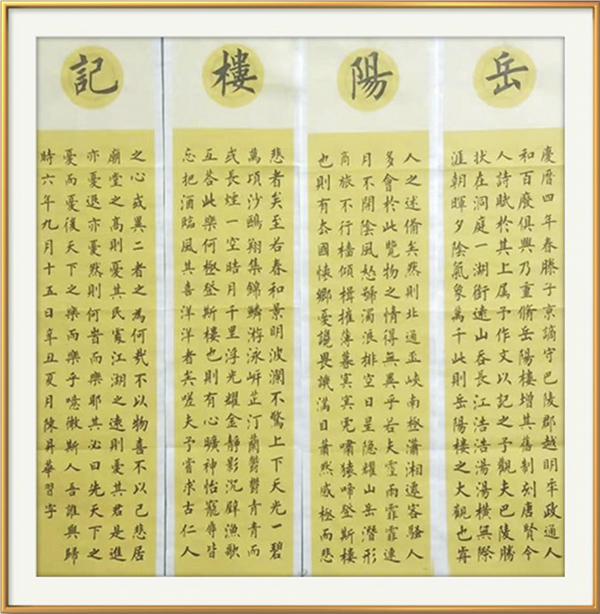 岳陽樓記
慶曆四年春滕子京謫守巴陵郡越明年政通人
和百廢俱興乃重脩岳陽樓增其舊制刻唐賢今
人詩賦於其上属予作文以記之予觀夫巴陵勝
狀在洞庭一湖銜遠山吞長江浩浩湯湯橫無際
涯朝暉夕陰氣象萬千此則岳陽樓之大觀也前
人之述備矣然則北通巫峽南極瀟湘遷客騷人
多會於此覽物之情得無異乎若夫霪雨霏霏連
月不開陰風怒號濁浪排空日星隱耀山岳潛形
商旅不行檣傾楫摧薄暮冥冥虎嘯猿啼登斯樓
也則有去國懷鄉憂讒畏譏滿目蕭然感極而悲
悲者矣至若春和景明波瀾不驚上下天光一碧
萬頃沙鷗翔集錦鱗游泳岸芷汀蘭鬱鬱青青而
或長煙一空皓月千里浮光耀金靜影沉璧漁歌
互答此樂何極登斯樓也則有心曠神怡寵辱皆
忘把酒臨風其喜洋洋者矣嗟夫予嘗求古仁人
之心或異二者之為何哉不以物喜不以己悲居
廟堂之高則憂其民處江湖之遠則憂其君是進
亦憂退亦憂然則何時而樂耶其必曰先天下之
憂而憂後天下之樂而樂乎噫微斯人吾誰與歸
時六年九月十五日辛丑夏月陳昇華習字